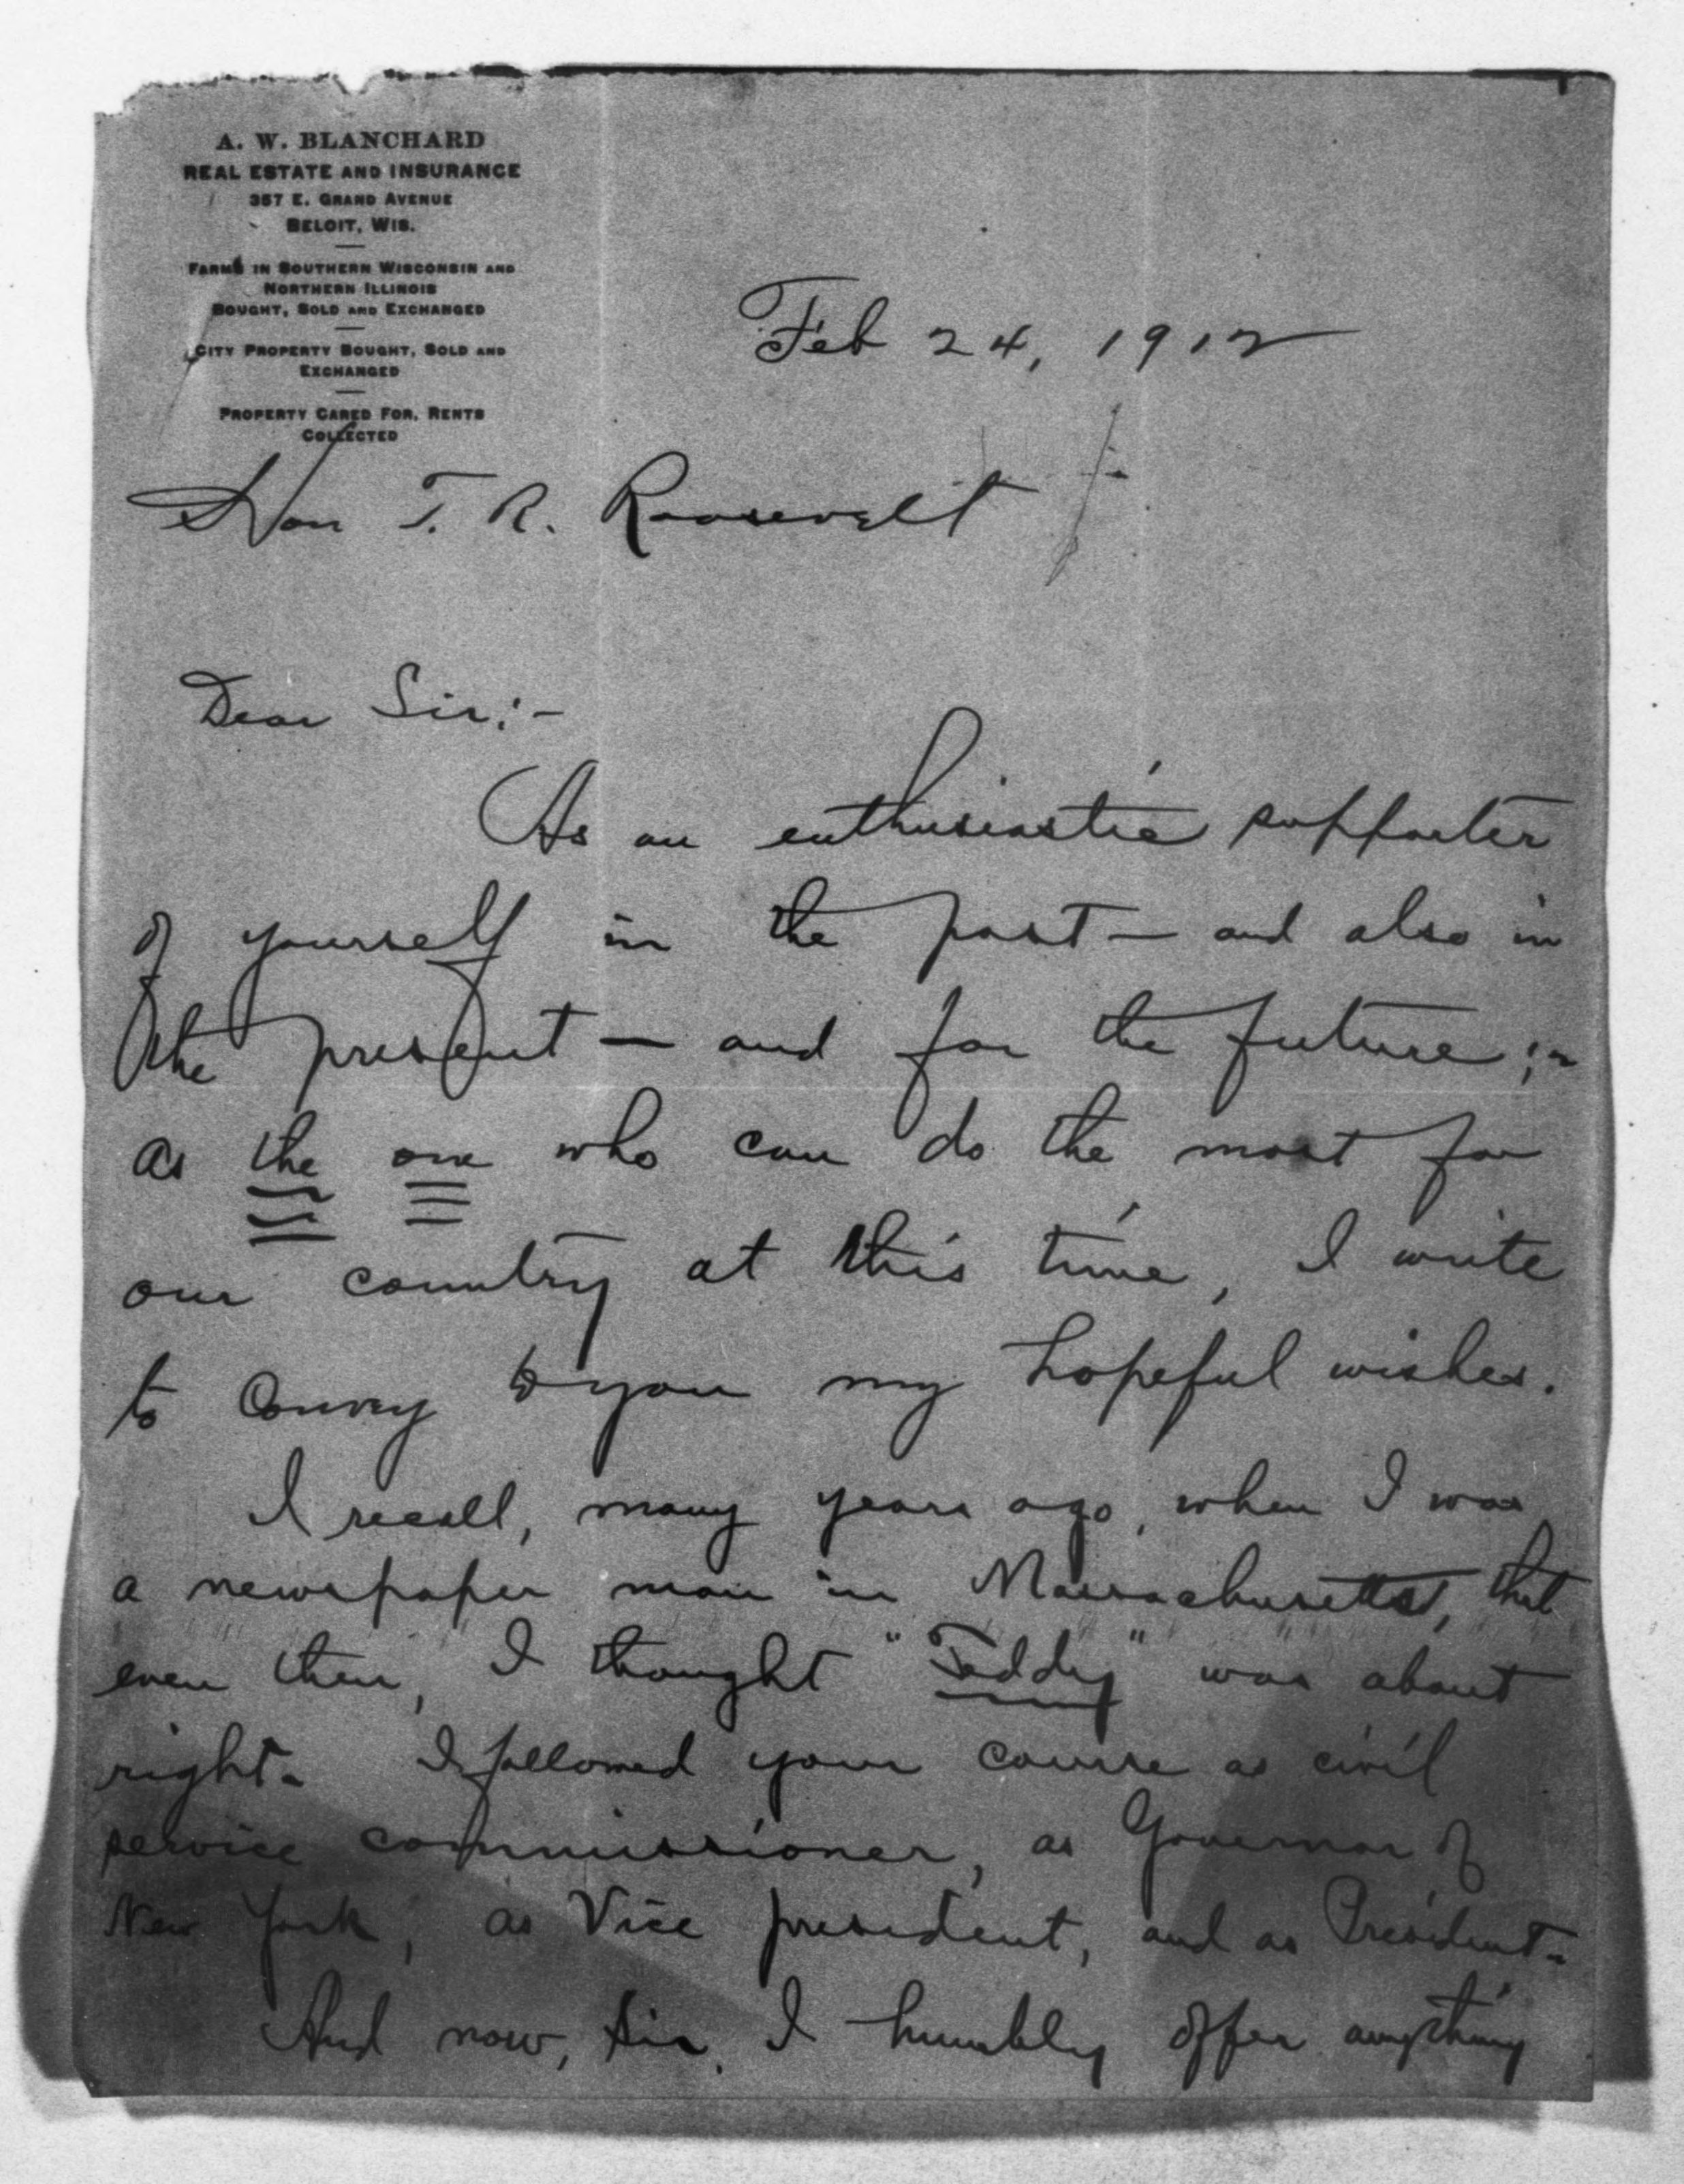 A. W. BLANCHARD
REAL ESTATE AND INSURANCE
357 E. GRAND AVENUE
BELOIT, WIS.
FARMS IN SOUTHERN WISCONSIN AND
NORTHERN ILLINOIS
BOUGHT, SOLD AND EXCHANGED
CITY PROPERTY BOUGHT, SOLD AND
EXCHANGED
PROPERTY CARED FOR, RENTS
COLLECTED
Feb 24, 1912
Hon T. R. Roosevelt
Dear Sir:-
As an enthusiastic supporter
of yourself in the past — and also in
the present — and for the future ;-
as the one who can do the most for
our country at this time, I write
to convey to you my hopeful wishes.
I recall, many years ago, when I was
a newspaper man in Massachusetts, that
even then, I thought "Teddy" was about
right. I followed your course as civil
service commissioner, as Governor of
New York, as Vice president, and as President.
And now, sir, I humbly offer anything